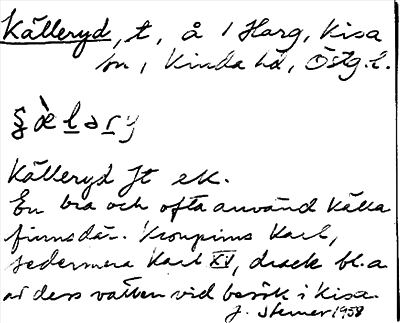 Källeryd, t, å 1 Harg, Kisa
sn, Kinda hd, Östg.l.
Källeryd Jt ek.
En bra och ofta använd källa
finns där. Kronprins Karl,
sedermera Karl XV, drack bl.a
av dess vatten vid besök i Kisa.
J. Stener 1958